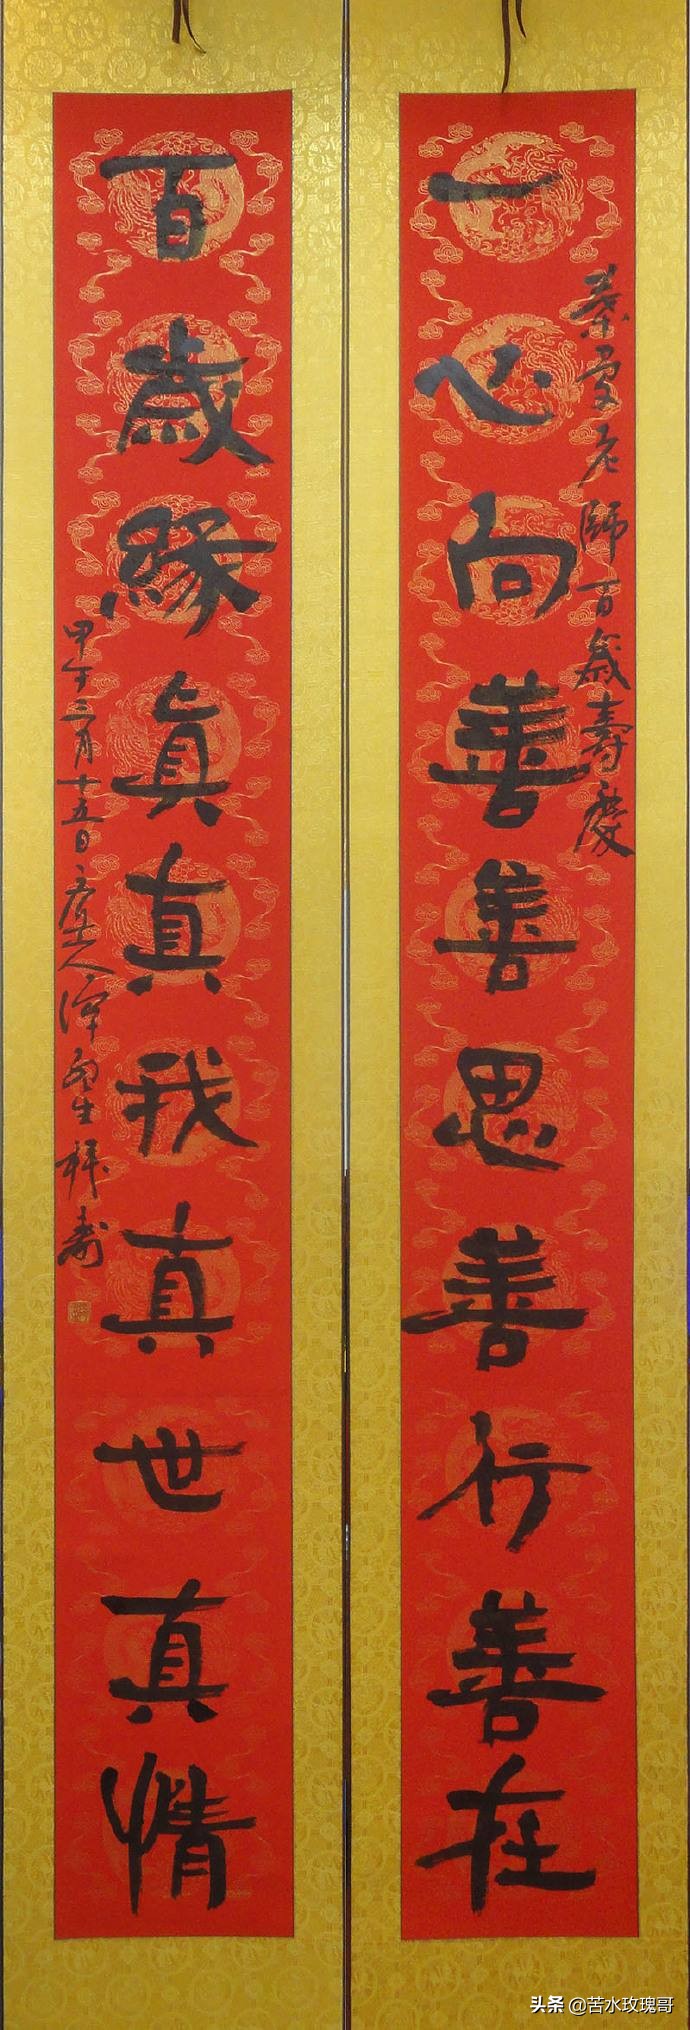 一心向善善思善行善在
葉曼老師百歲壽慶
百歲緣眞真我真世真情
甲午三月十五日 人 生拜壽
头条 @苦水玫瑰哥